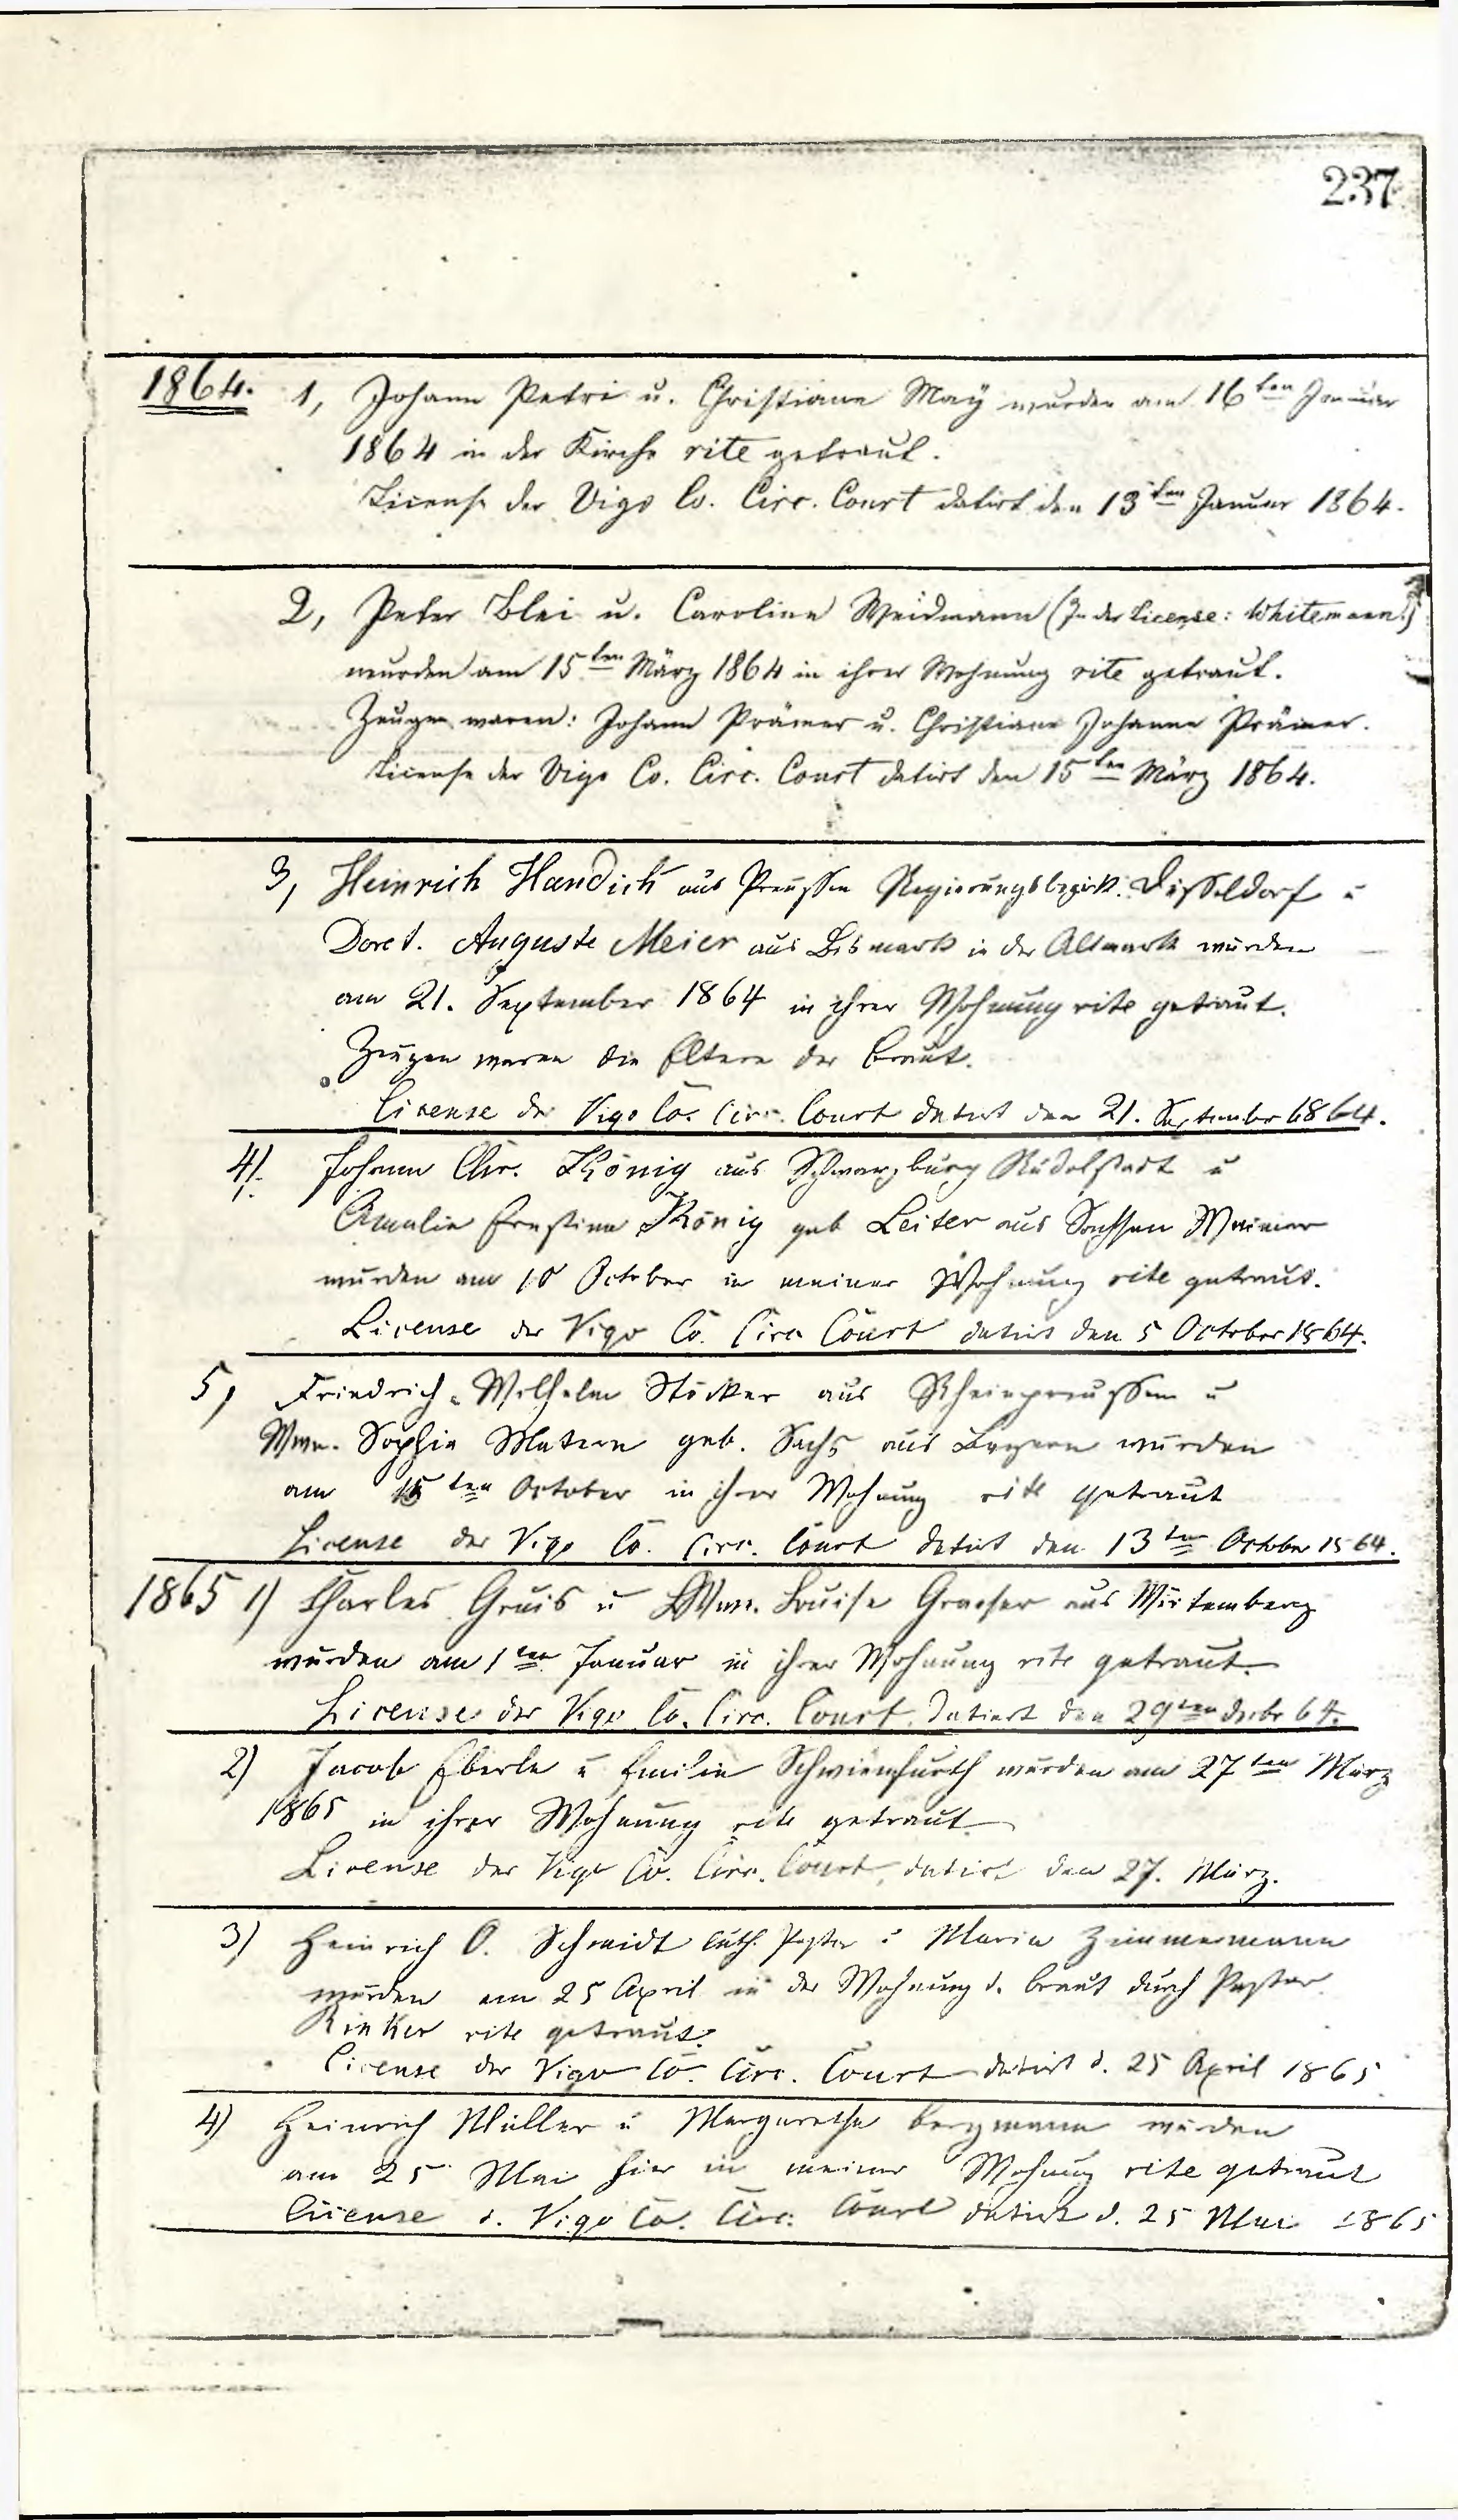 237
1864. 1, Johann Petri u. Christiane Maÿ wurden am 16ten Januar
1864 in der Kirche rite getraut.
License der Vigo Co. Circ. Court datirt den 13ten Januar 1864.
2, Peter Blei u. Caroline Weidmann (In der License: Whitemann.)
wurden am 15ten März 1864 in ihrer Wohnung rite getraut.
Zeugen waren: Johann Prämer u. Christiane Johanne Prämer.
License der Vigo Co. Circ. Court datirt den 15ten März 1864.
3, Heinrich Handich aus Preussen Regierungsbezirk Düsseldorf u
Doret. Auguste Meier aus Bismark in der Altmark wurden
am 21. September 1864 in ihrer Wohnung rite getraut.
Zeugen waren die Eltern der Braut.
License der Vigo Co. Circ. Court datirt den 21. September 1864.
4). Johann Chr. König aus Schwarzburg Rudolstadt u
Amalie Ernstine König geb Leiter aus Sachsen Weimar
wurden am 10 October in meiner Wohnung rite getraut.
License der Vigo Co. Circ Court datirt den 5 October 1864.
5, Friedrich Wilhelm Stöcker aus Rheinpreussen u
Wwe. Sophie Matern geb. Sachs aus Bayern wurden
am 15ten October in ihrer Wohnung rite getraut
License der Vigo Co. Circ. Court datirt den 13ten October 1864.
1865 1) Charles Gruis u Wwe. Louise Graeser aus Würtemberg
wurden am 1ten Januar in ihrer Wohnung rite getraut.
License der Vigo Co. Circ. Court. Datirt den 29ten Decbr 64.
2) Jacob Eberle u Emilie Schwienfurth wurden am 27ten März
1865 in ihrer Wohnung rite getraut
License der Vigo Co. Circ. Court, datirt den 27. März.
3) Heinrich O. Schmidt luth. Pastor u Maria Zimmermann
wurden am 25 April in der Wohnung d. Braut durch Pastor
Rinker rite getraut.
License der Vigo Co. Circ. Court datirt d. 25 April 1865
4) Heinrich Müller u Margarethe Bergmann wurden
am 25 Mai hier in meiner Wohnung rite getraut
License d. Vigo Co. Circ. Court datirt d. 25 Mai 1865